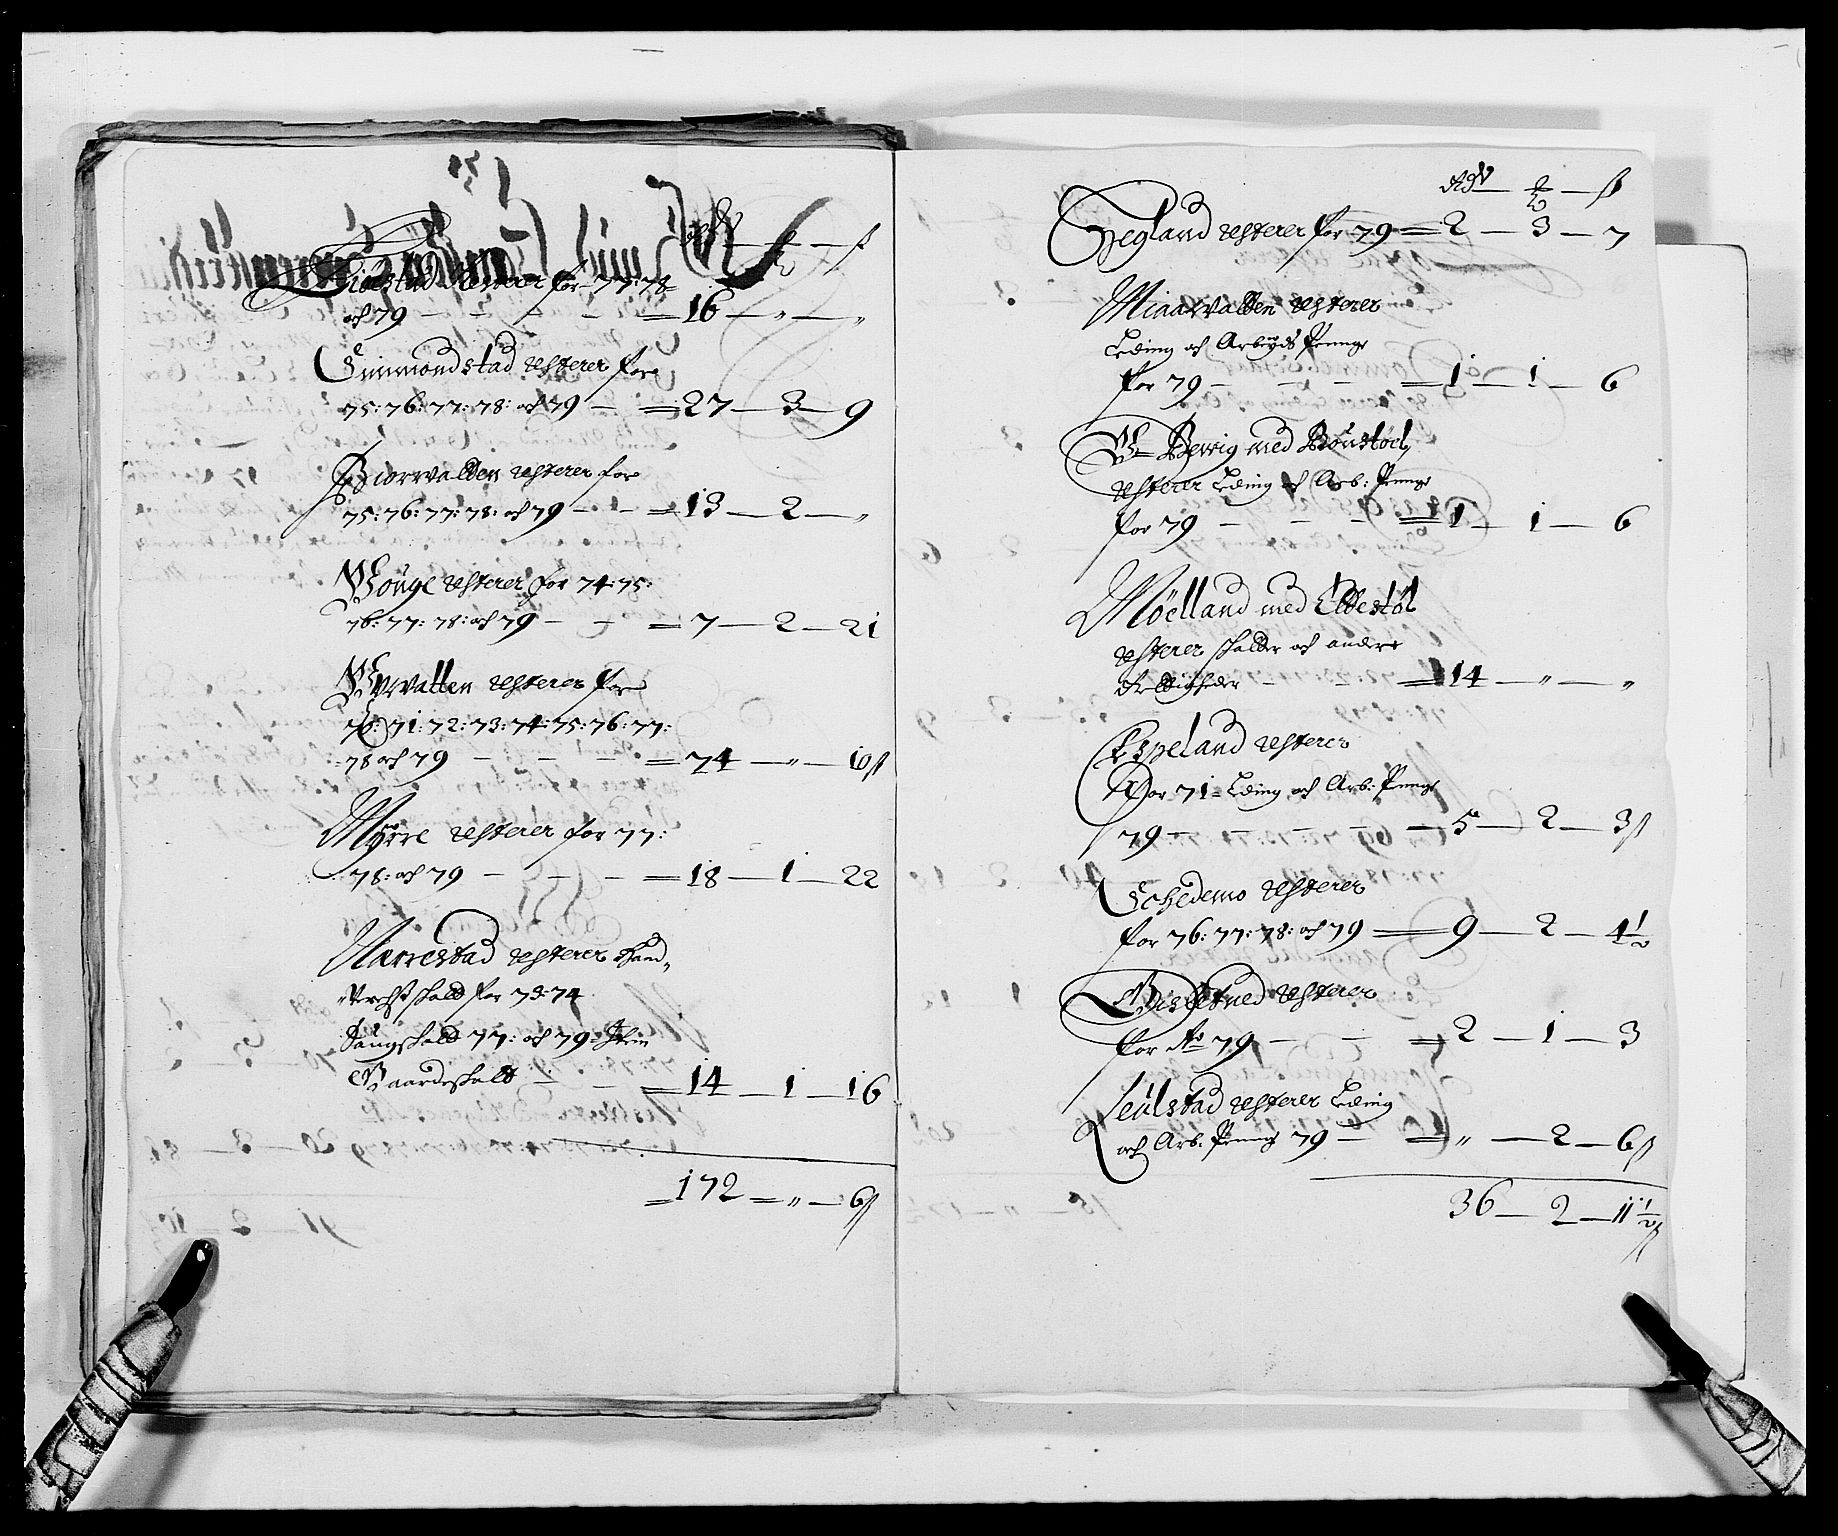 Rdr — ₰ — ß
Giøestad Resterer for 77: 78
och 79 — — — — 16 — „ — „
Simmondstad Resterer for
75: 76: 77: 78: och 79 — 27 — 3 — 9
Biorwatten Resterer for
75: 76: 77: 78: och 79 — — 13 — 2 — „
Wouge Resterer for 74: 75:
76: 77: 78: och 79 — — 7 — 2 — 21
Wiwatten Resterer for
70: 71: 72: 73: 74: 75: 76: 77:
78 och 79 — — — 74 — „ — 10 ß
Myrre Resterer for 77:
78: och 79 — — — 18 — 1 — 22
Narrestad Resterer
schatt for 73: 74
schatt 77: och 79
Gaardeschatt — — 14 — 1 — 16
172 — „ — 6 ß
Rdr — ₰ — ß
Hegland Resterer for 79 — 2 — 3 — 7
Miaawatten Resterer
Leding och Arbeyds Penge
for 79 — — — 1 — 1 — 6
Berrig med Boustoel
Resterer Leding och Arb: Penge
for 79 — — — 1 — 1 — 6
Möelland med Eldestöl
Resterer schatter och andere
Rettigheder — — 14 — „ — „
Espeland Resterer
For 71 Leding och Arb: Penge
79 — — — — 5 — 2 — 3 ß
Schedemo Resterer
for 76: 77: 78: och 79 — 9 — 2 — 4½
Resterer
for Ao 79 — — 2 — 1 — 3
Seulstad Resterer Leding
och Arb: Penge 79 — „ — 2 — 6 ß
36 — 2 — 11½ ß